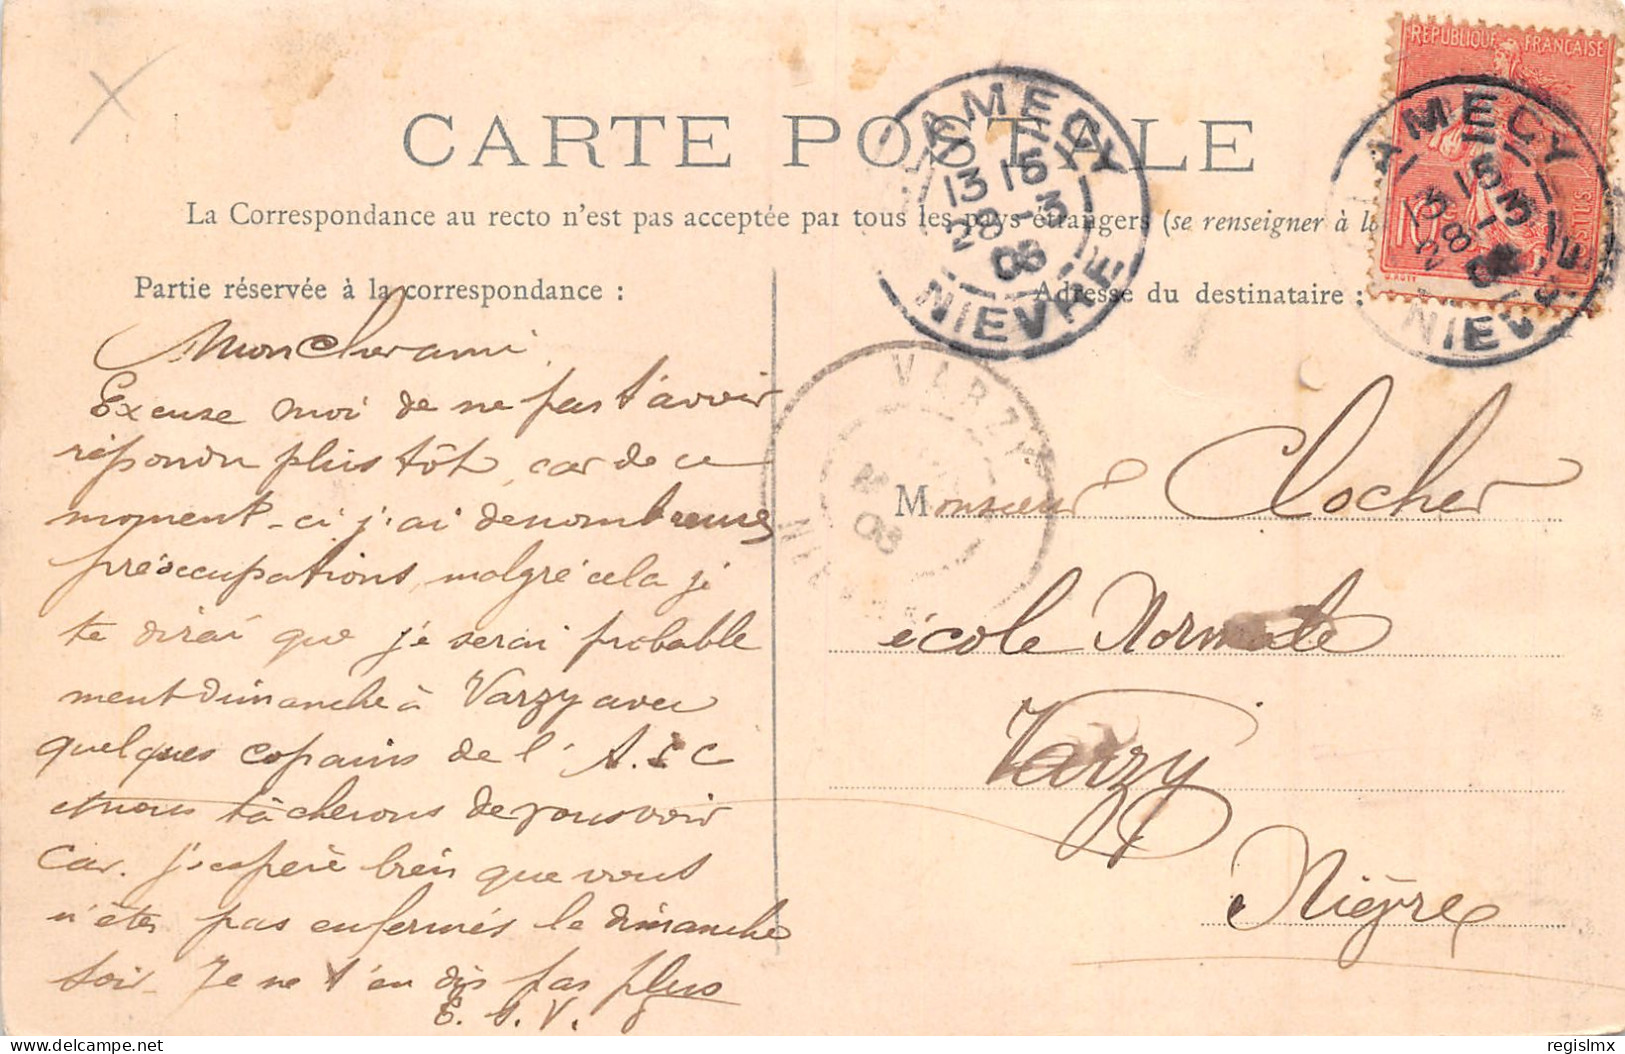 CARTE POSTALE
La Correspondance au recto n'est pas acceptée par tous les pays étrangers (se renseigner à la
Partie réservée à la correspondance :
Mon Cher ami
Excuse moi de ne pas t'avoir
répondu plus tôt, car de ce
moment-ci j'ai de nombreuses
préoccupations, malgré cela je
te dirai que je serai probable
ment dimanche à Varzy avec
quelques copains de l'A.S.C
et nous tâcherons de vous voir
car j'espère bien que vous
n'êtes pas enfermés le dimanche
soir. Je ne t'en dis pas plus
E. S. V.
Adresse du destinataire :
Monsieur Clocher
école Normale
Varzy
Nièvre
RÉPUBLIQUE FRANÇAISE
POSTES
10c
CLAMECY
13 15
28 -3
08
NIEVRE
CLAMECY
13 15
28 -3
08
NIEVRE
VARZY
08
NIEVRE
delcampe.net
regislmx